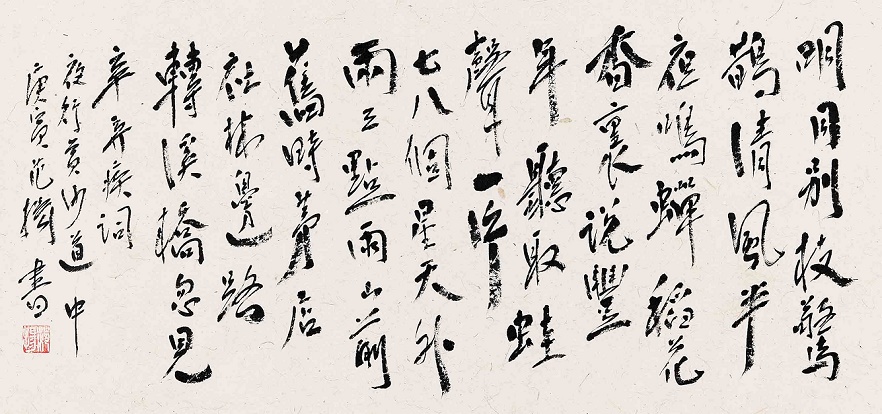 明月别枝驚
鵲清風半
夜鳴蟬稻花
香裏説豐
年聽取蛙
聲一片
七八個星天外
兩三點雨山前
舊時茅店
社林邊路
轉溪橋忽見
辛弃疾詞
夜行黄沙道中
庚寅范揚書